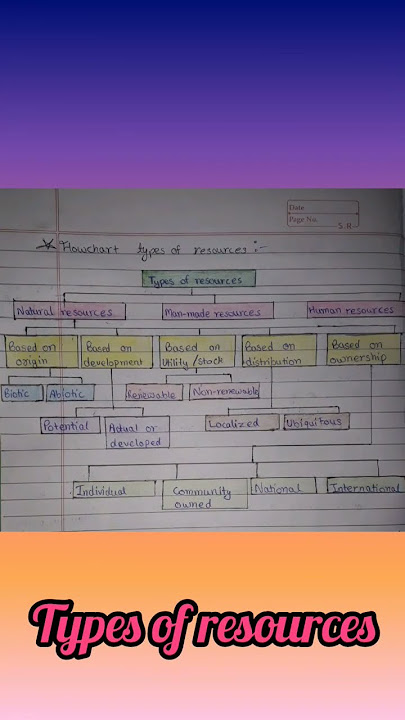 Date
Page No.
S.R.
Flowchart types of resources :-
Types of resources
Natural resources
Man-made resources
Human resources
Based on
origin
Based on
development
Based on
Utility /stock
Based on
distribution
Based on
ownership
Biotic
Abiotic
Renewable
Non-renewable
Potential
Actual or
developed
Localized
Ubiquitous
Individual
Community
owned
National
International
Types of resources